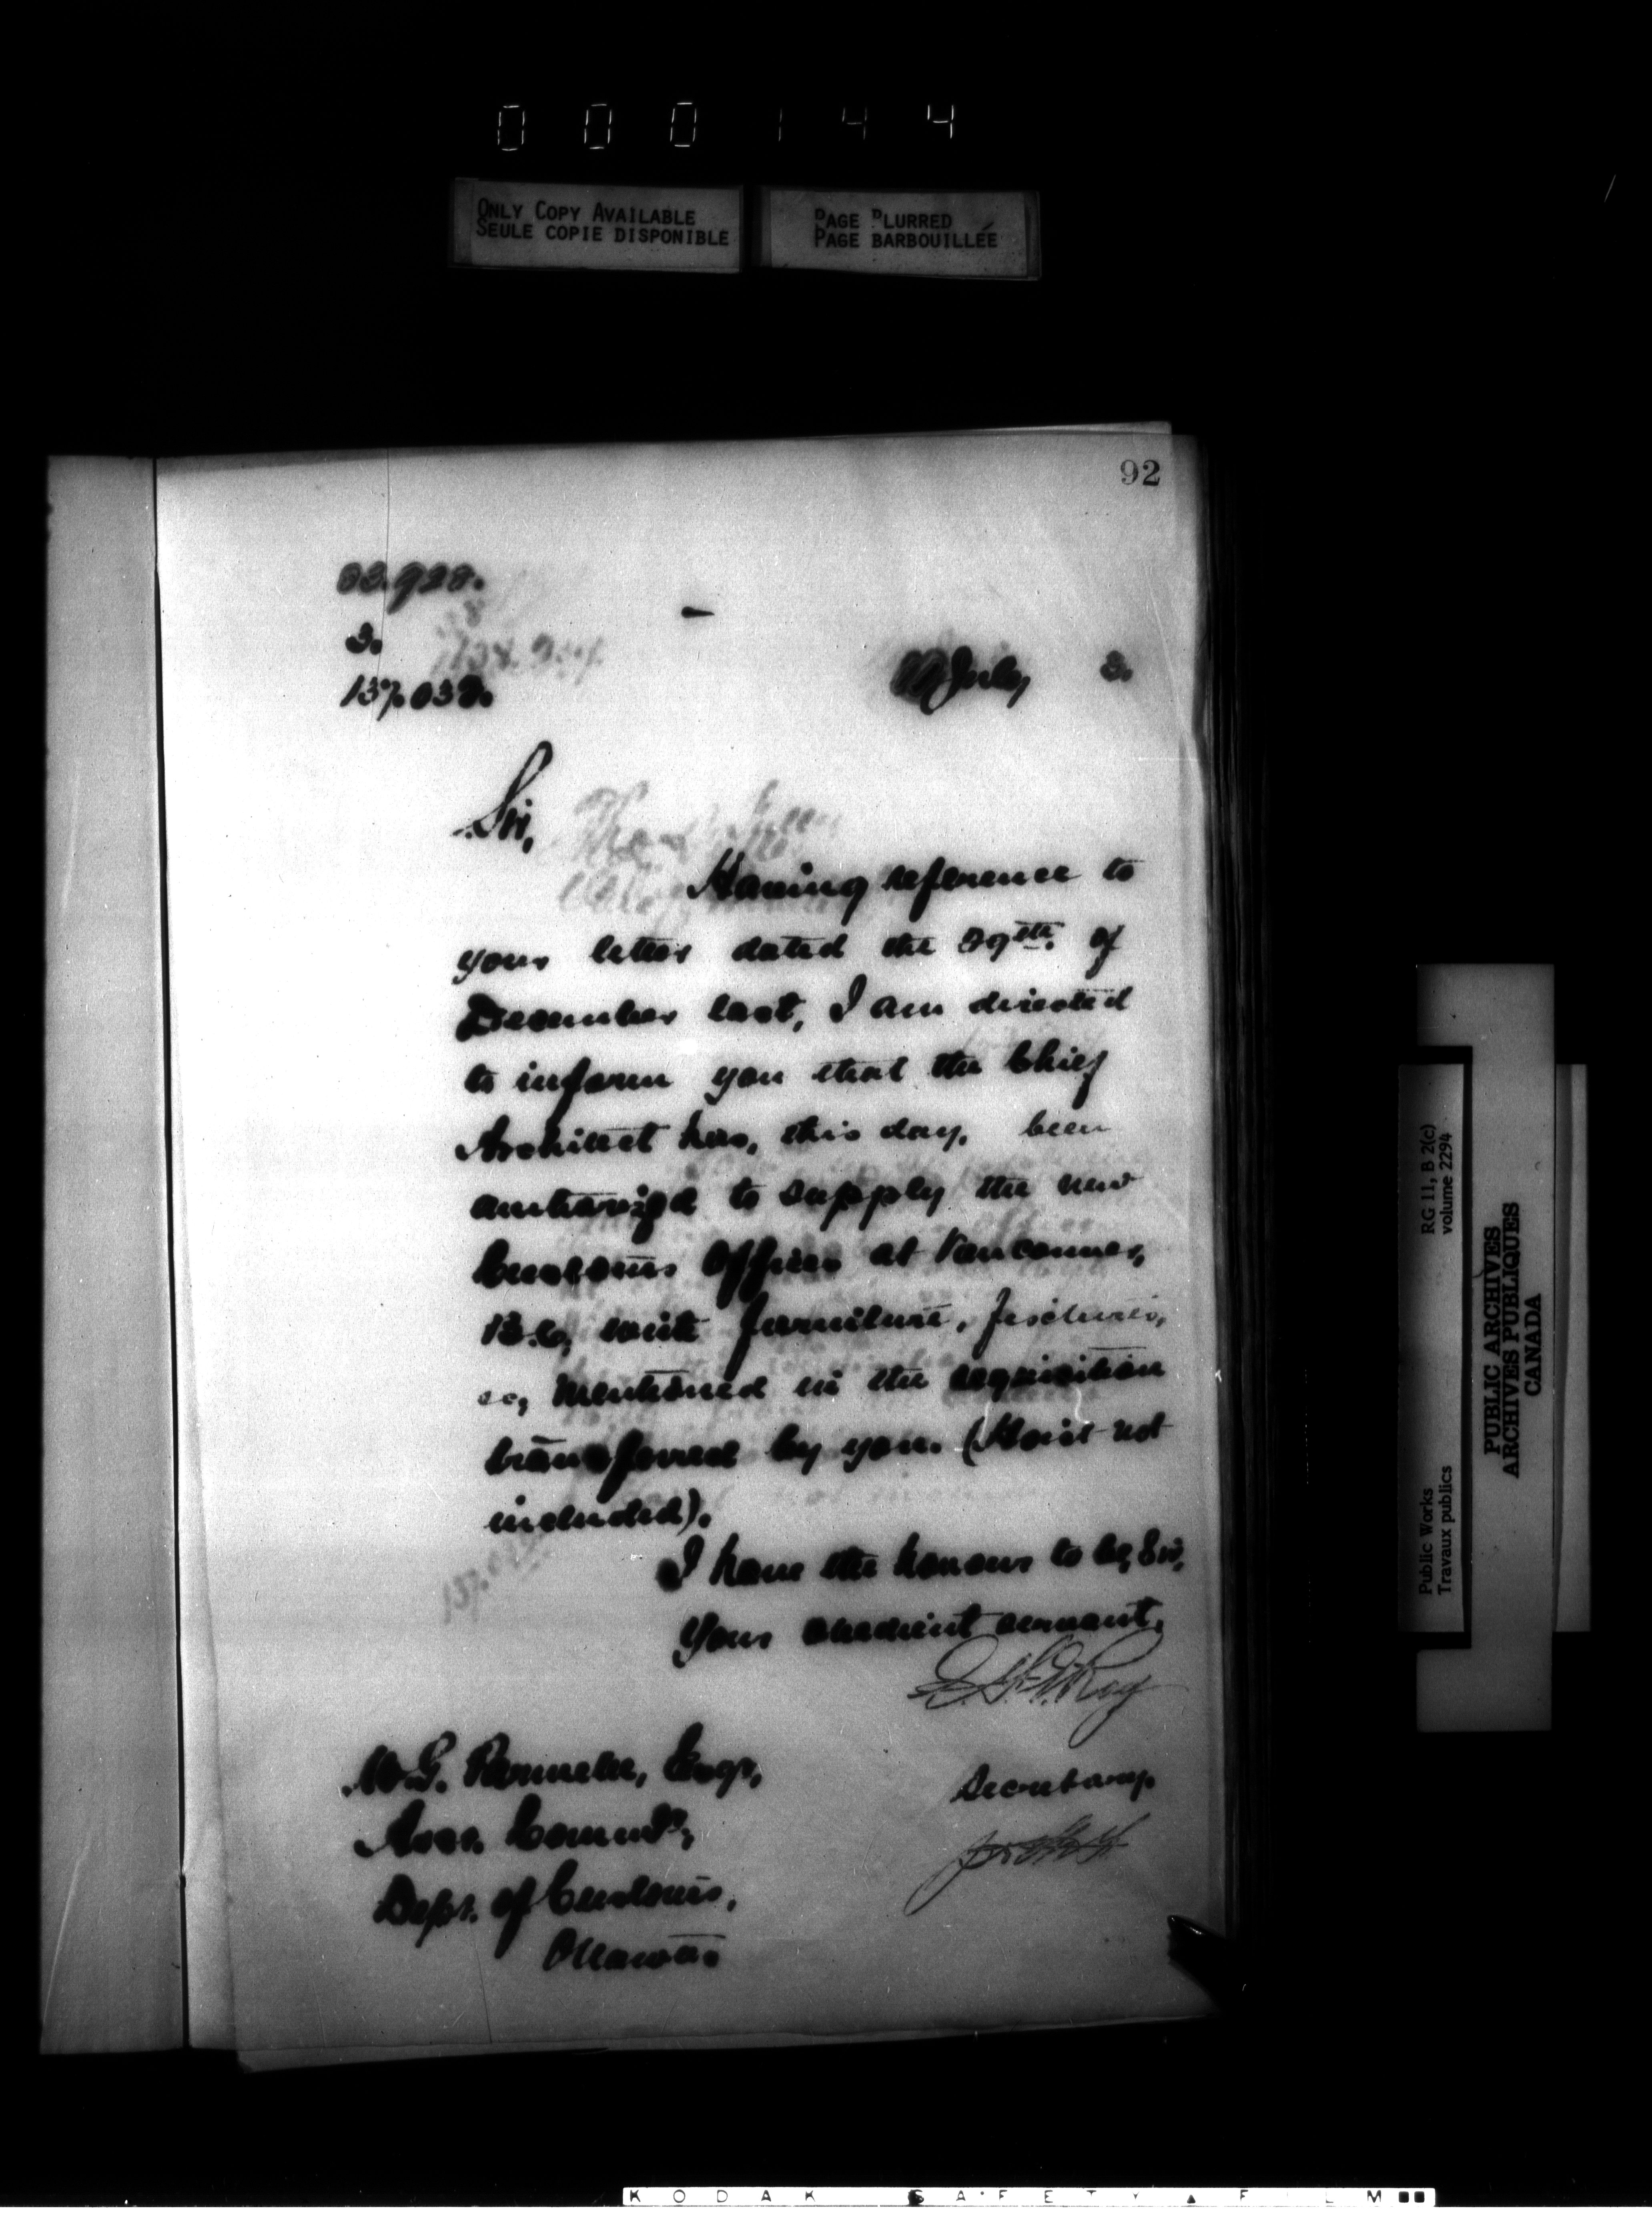 000144
ONLY COPY AVAILABLE
SEULE COPIE DISPONIBLE
PAGE BLURRED
PAGE BARBOUILLÉE
92
3.
137.038.
July 3.
Sir,
Having reference to
your letter dated the 29th. of
December last, I am directed
to inform you that the Chief
Architect has, this day, been
authorized to supply the new
Customs Offices at Vancouver,
B.C., with furniture, fixtures,
&c, mentioned in the requisition
transferred by you. (Hoist not
included).
I have the honour to be, Sir,
Your obedient servant,
Roy
Secretary.
W.G. Parmelee, Esqr,
Asst. Commr.,
Dept. of Customs,
Ottawa.
Public Works
Travaux publics
RG 11, B 2(c)
volume 2294
PUBLIC ARCHIVES
ARCHIVES PUBLIQUES
CANADA
KODAK SAFETY FILM